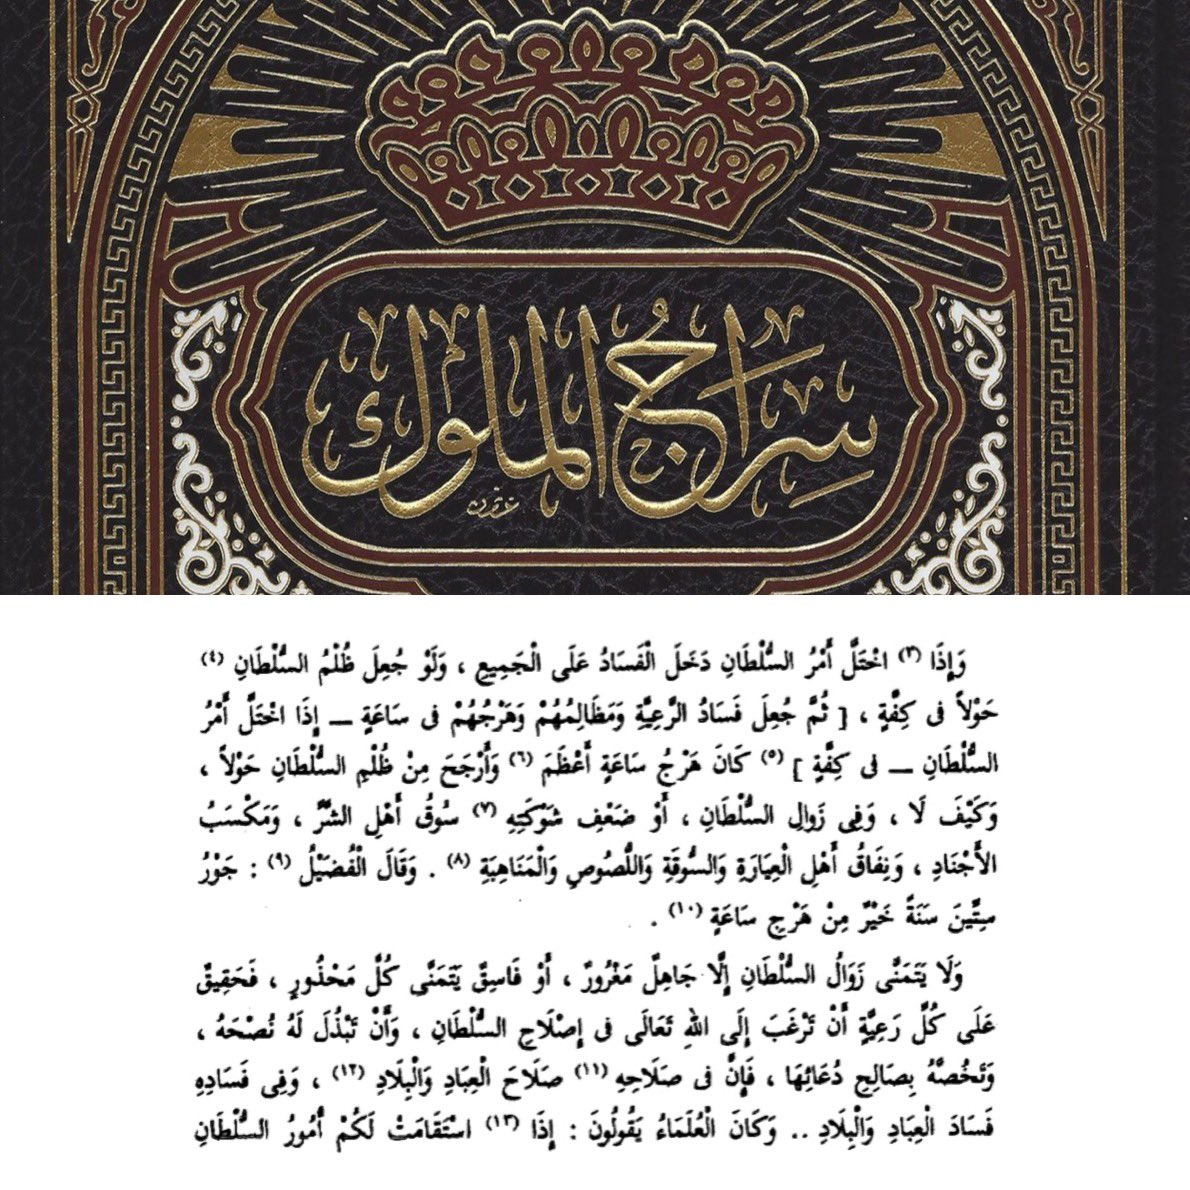 سِرَاجُ الملوك
وَإِذَا (٣) اخْتَلَّ أَمْرُ السُّلْطَانِ دَخَلَ الْفَسَادُ عَلَى الْجَمِيعِ ، وَلَوْ جُعِلَ ظُلْمُ السُّلْطَانِ (٤)
حَوْلاً فى كِفَّةٍ ، [ ثُمَّ جُعِلَ فَسَادُ الرَّعِيَّةِ وَمَظَالِمُهُمْ وَهَرْجُهُمْ فى سَاعَةٍ ــ إِذَا اخْتَلَّ أَمْرُ
السُّلْطَانِ ــ فى كِفَّةٍ ] (٥) كَانَ هَرْجُ سَاعَةٍ أَعْظَمَ (٦) وَأَرْجَحَ مِنْ ظُلْمِ السُّلْطَانِ حَوْلاً ،
وَكَيْفَ لَا ، وَفِى زَوالِ السُّلْطَانِ ، أَوْ ضَعْفِ شَوْكَتِهِ (٧) سُوقُ أَهْلِ الشَّرِّ ، وَمَكْسَبُ
الأَجْنَادِ ، وَنِفَاقُ أَهْلِ الْعِيَارَةِ وَالسُّوقَةِ وَاللُّصُوصِ وَالْمَنَاهِبَةِ (٨) . وَقَالَ الْفُضَيْلُ (٩) : جَوْرُ
سِتِّينَ سَنَةً خَيْرٌ مِنْ هَرْجِ سَاعَةٍ (١٠) .
وَلَا يَتَمَنَّى زَوَالُ السُّلْطَانِ إِلَّا جَاهِلٌ مَغْرُورٌ ، أَوْ فَاسِقٌ يَتَمَنَّى كُلَّ مَحْذُورٍ ، فَحَقِيقٌ
عَلَى كُلِّ رَعِيَّةٍ أَنْ تَرْغَبَ إِلَى اللهِ تَعَالَى فى إِصْلَاحِ السُّلْطَانِ ، وَأَنْ تَبْذُلَ لَهُ نُصْحَهُ ،
وَتَخُصَّهُ بِصَالِحِ دُعَائِهَا ، فَإِنَّ فى صَلَاحِهِ (١١) صَلَاحَ الْعِبَادِ وَالْبِلَادِ (١٢) ، وَفِى فَسَادِهِ
فَسَادَ الْعِبَادِ وَالْبِلَادِ .. وَكَانَ الْعُلَمَاءُ يَقُولُونَ : إِذَا (١٣) اسْتَقَامَتْ لَكُمْ أُمُورُ السُّلْطَانِ